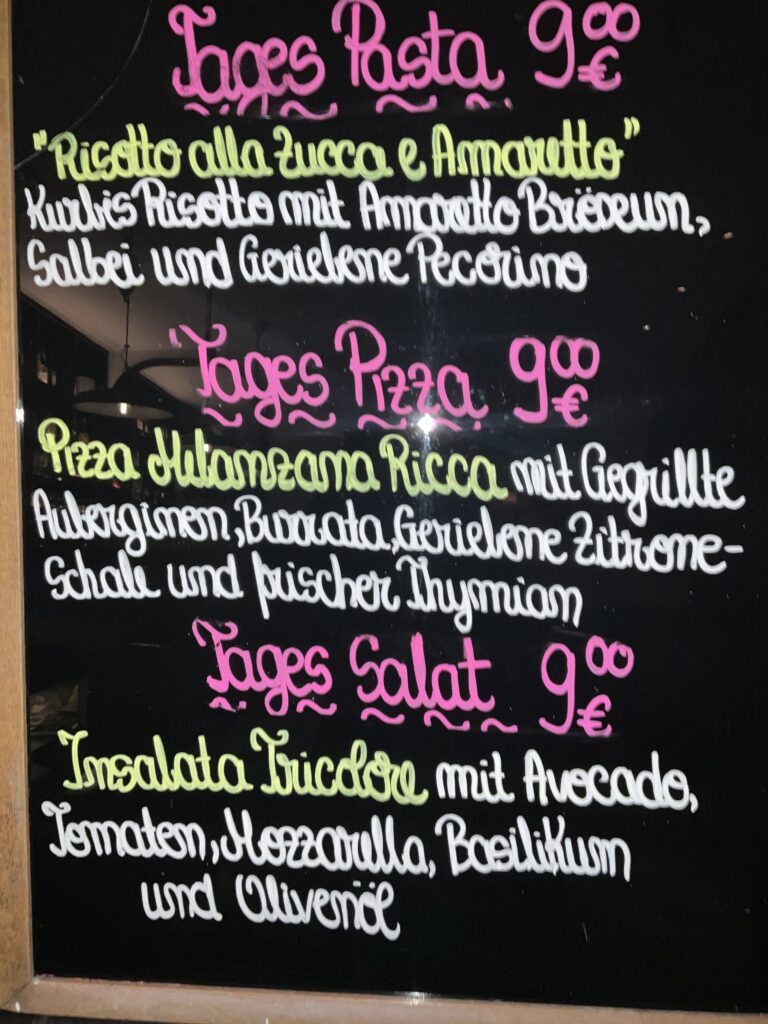 Tages Pasta 9⁰⁰ €
"Risotto alla Zucca e Amaretto"
Kurbis Risotto mit Amaretto Bröseun,
Salbei und Gerielene Pecorino
Tages Pizza 9⁰⁰ €
Pizza Melanzana Ricca mit Gegrillte
Auberginen, Burrata, Gerielene Zitrone-
Schale und frischer Thymian
Tages Salat 9⁰⁰ €
Insalata Tricolore mit Avocado,
Tomaten, Mozzarella, Basilikum
und Olivenöl